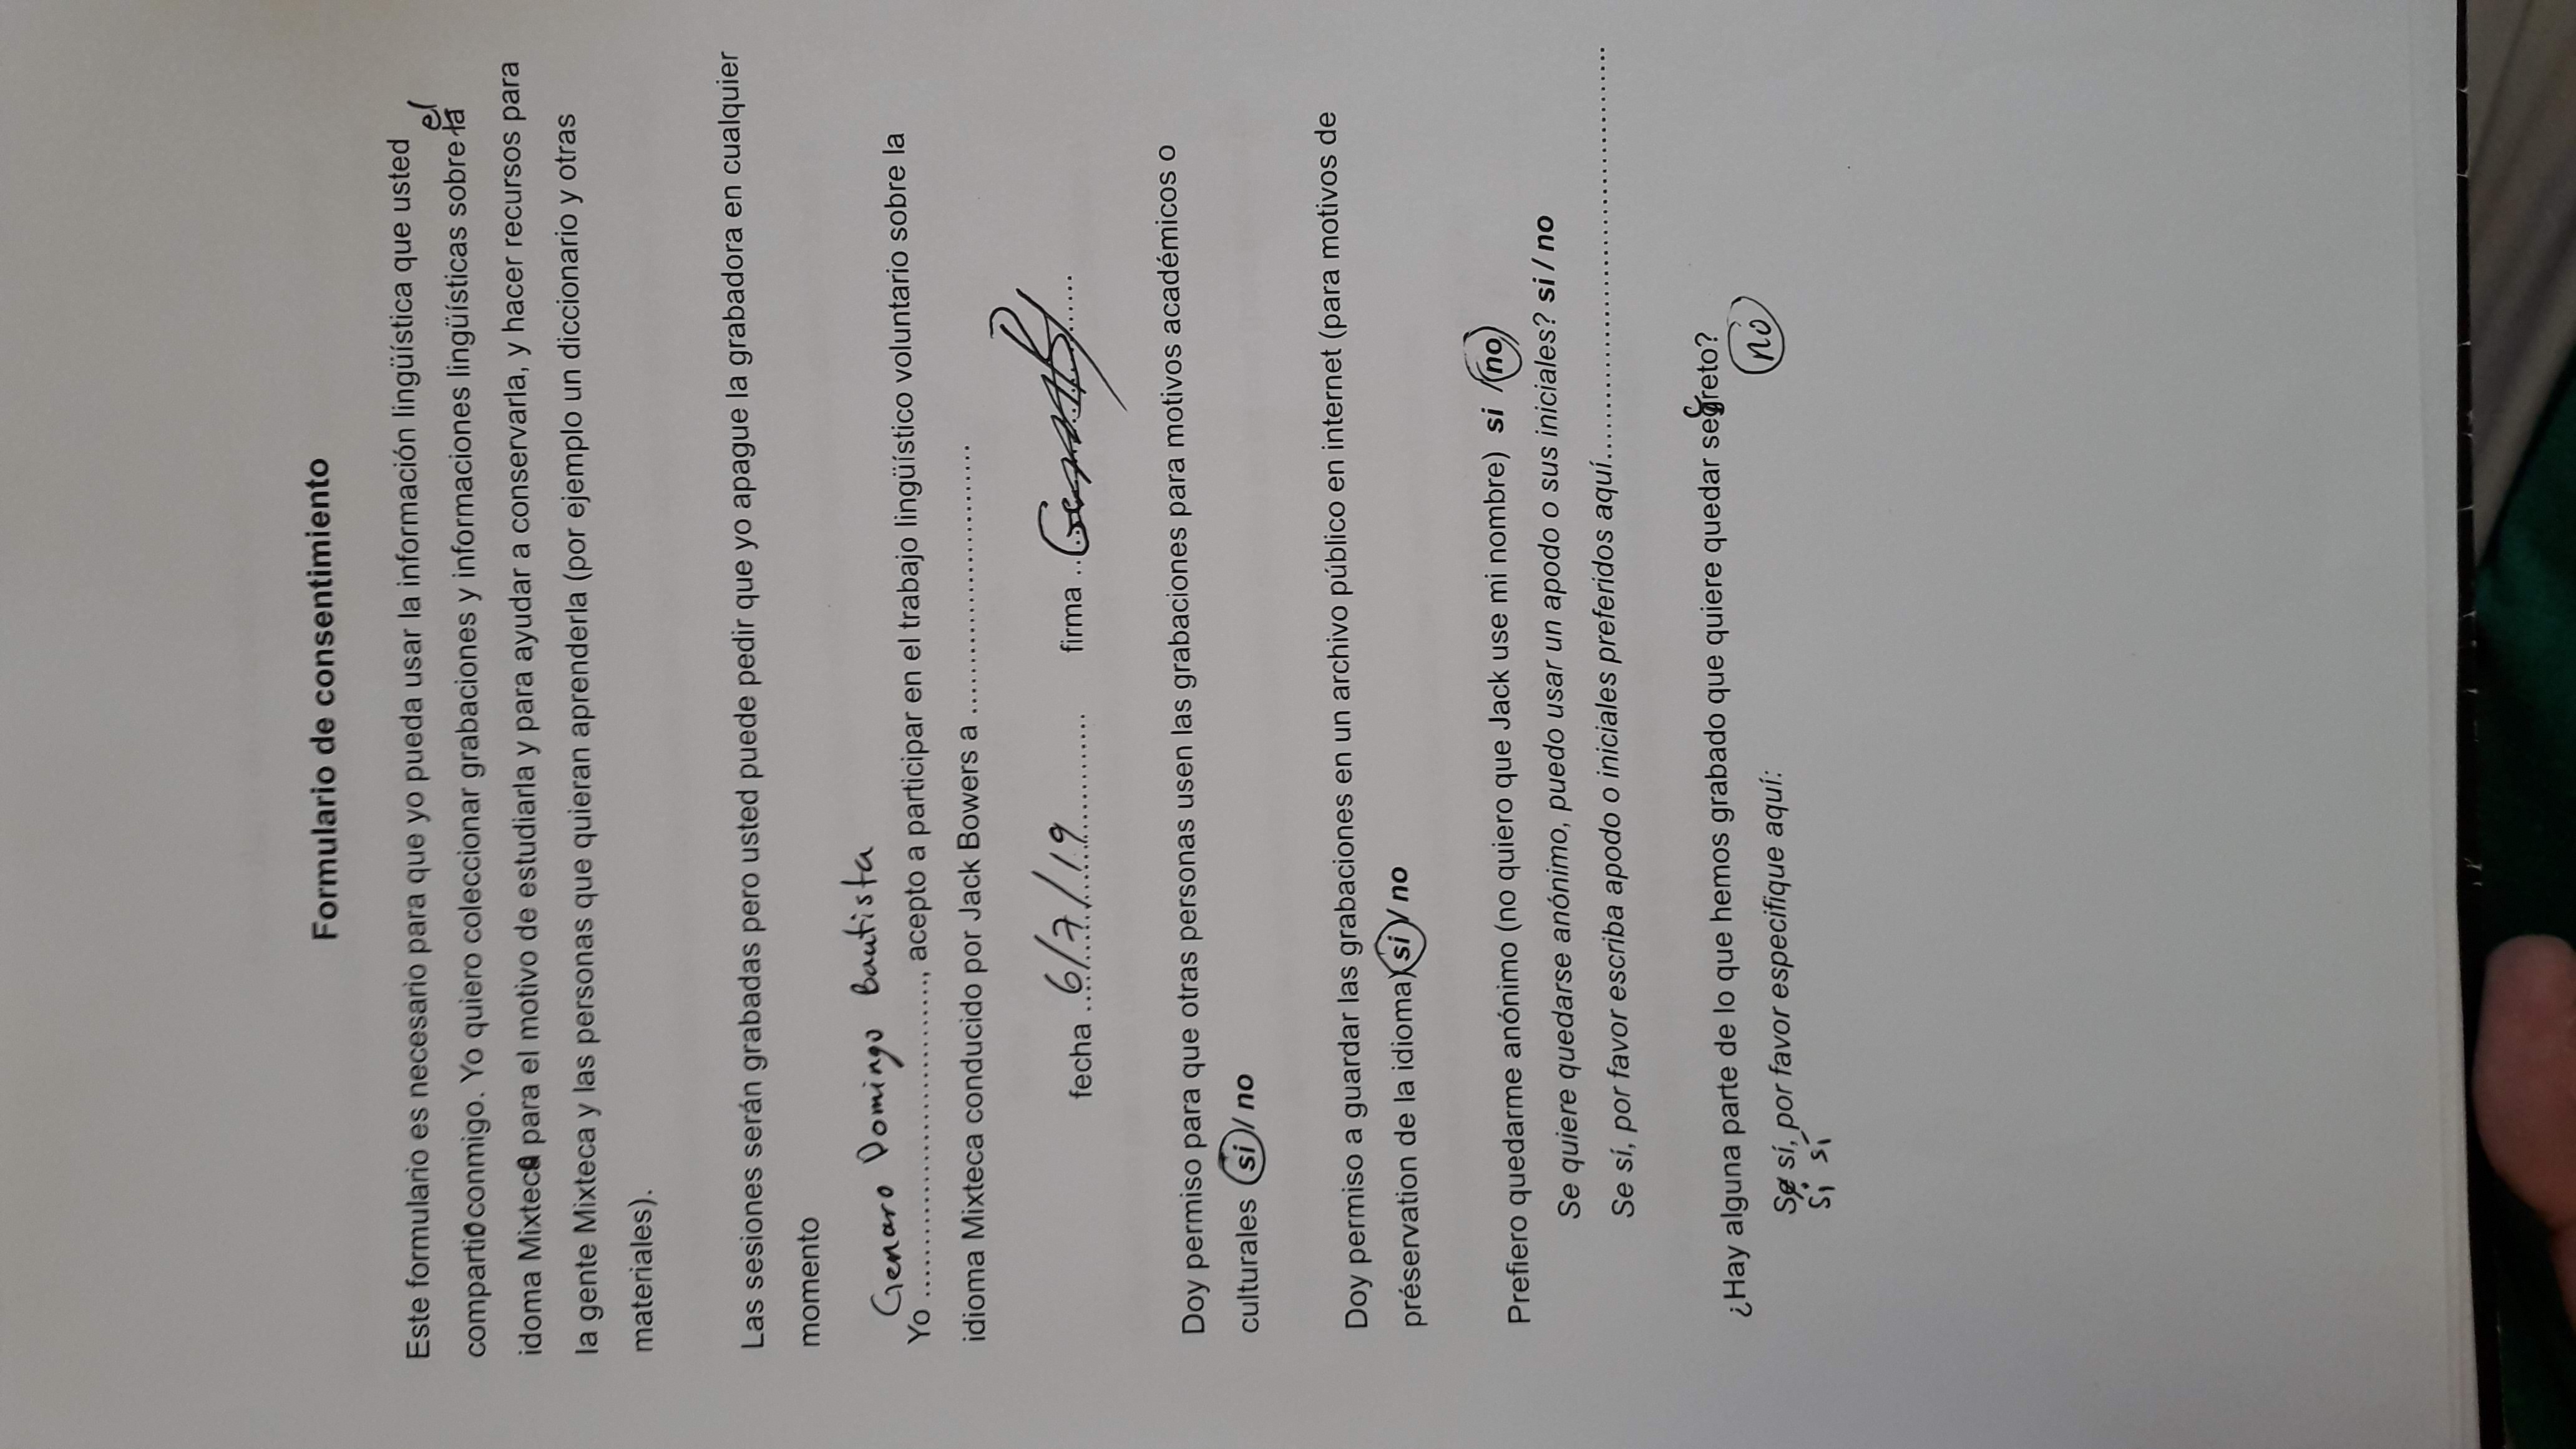 Formulario de consentimiento
Este formulario es necesario para que yo pueda usar la información lingüística que usted
compartio conmigo. Yo quiero coleccionar grabaciones y informaciones lingüísticas sobre la el
idoma Mixteco para el motivo de estudiarla y para ayudar a conservarla, y hacer recursos para
la gente Mixteca y las personas que quieran aprenderla (por ejemplo un diccionario y otras
materiales).
Las sesiones serán grabadas pero usted puede pedir que yo apague la grabadora en cualquier
momento
Genaro Domingo Bautista
Yo ..............................., acepto a participar en el trabajo lingüístico voluntario sobre la
idioma Mixteca conducido por Jack Bowers a ..............................
fecha 6/7/19 firma
Doy permiso para que otras personas usen las grabaciones para motivos académicos o
culturales si / no
Doy permiso a guardar las grabaciones en un archivo público en internet (para motivos de
préservation de la idioma) si / no
Prefiero quedarme anónimo (no quiero que Jack use mi nombre) si / no
Se quiere quedarse anónimo, puedo usar un apodo o sus iniciales? si / no
Se sí, por favor escriba apodo o iniciales preferidos aquí..............................
¿Hay alguna parte de lo que hemos grabado que quiere quedar secreto?
no
Se sí, por favor especifique aquí:
Si, si